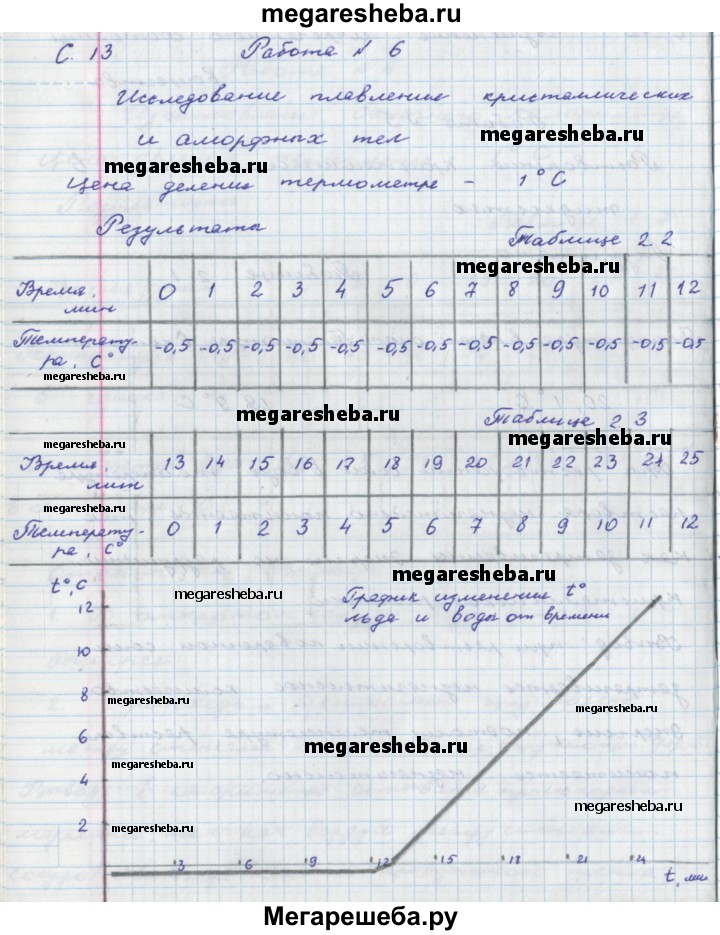 megaresheba.ru
С. 13 Работа № 6
Исследование плавления кристаллических
и аморфных тел
megaresheba.ru
megaresheba.ru
Цена деления термометра - 1°С
Результаты
Таблица 2.2
megaresheba.ru
Время, мин 0 1 2 3 4 5 6 7 8 9 10 11 12
Температу-
ра, С° -0,5 -0,5 -0,5 -0,5 -0,5 -0,5 -0,5 -0,5 -0,5 -0,5 -0,5 -0,5 -0,5
megaresheba.ru
megaresheba.ru
Таблица 2.3
megaresheba.ru
megaresheba.ru
Время, мин 13 14 15 16 17 18 19 20 21 22 23 24 25
megaresheba.ru
Температу-
ра, С° 0 1 2 3 4 5 6 7 8 9 10 11 12
megaresheba.ru
t°,С
megaresheba.ru
График изменения t°
льда и воды от времени
12
10
8
6
4
2
megaresheba.ru
megaresheba.ru
megaresheba.ru
megaresheba.ru
megaresheba.ru
megaresheba.ru
3 6 9 12 15 18 21 24
t, мин
Мегарешеба.ру